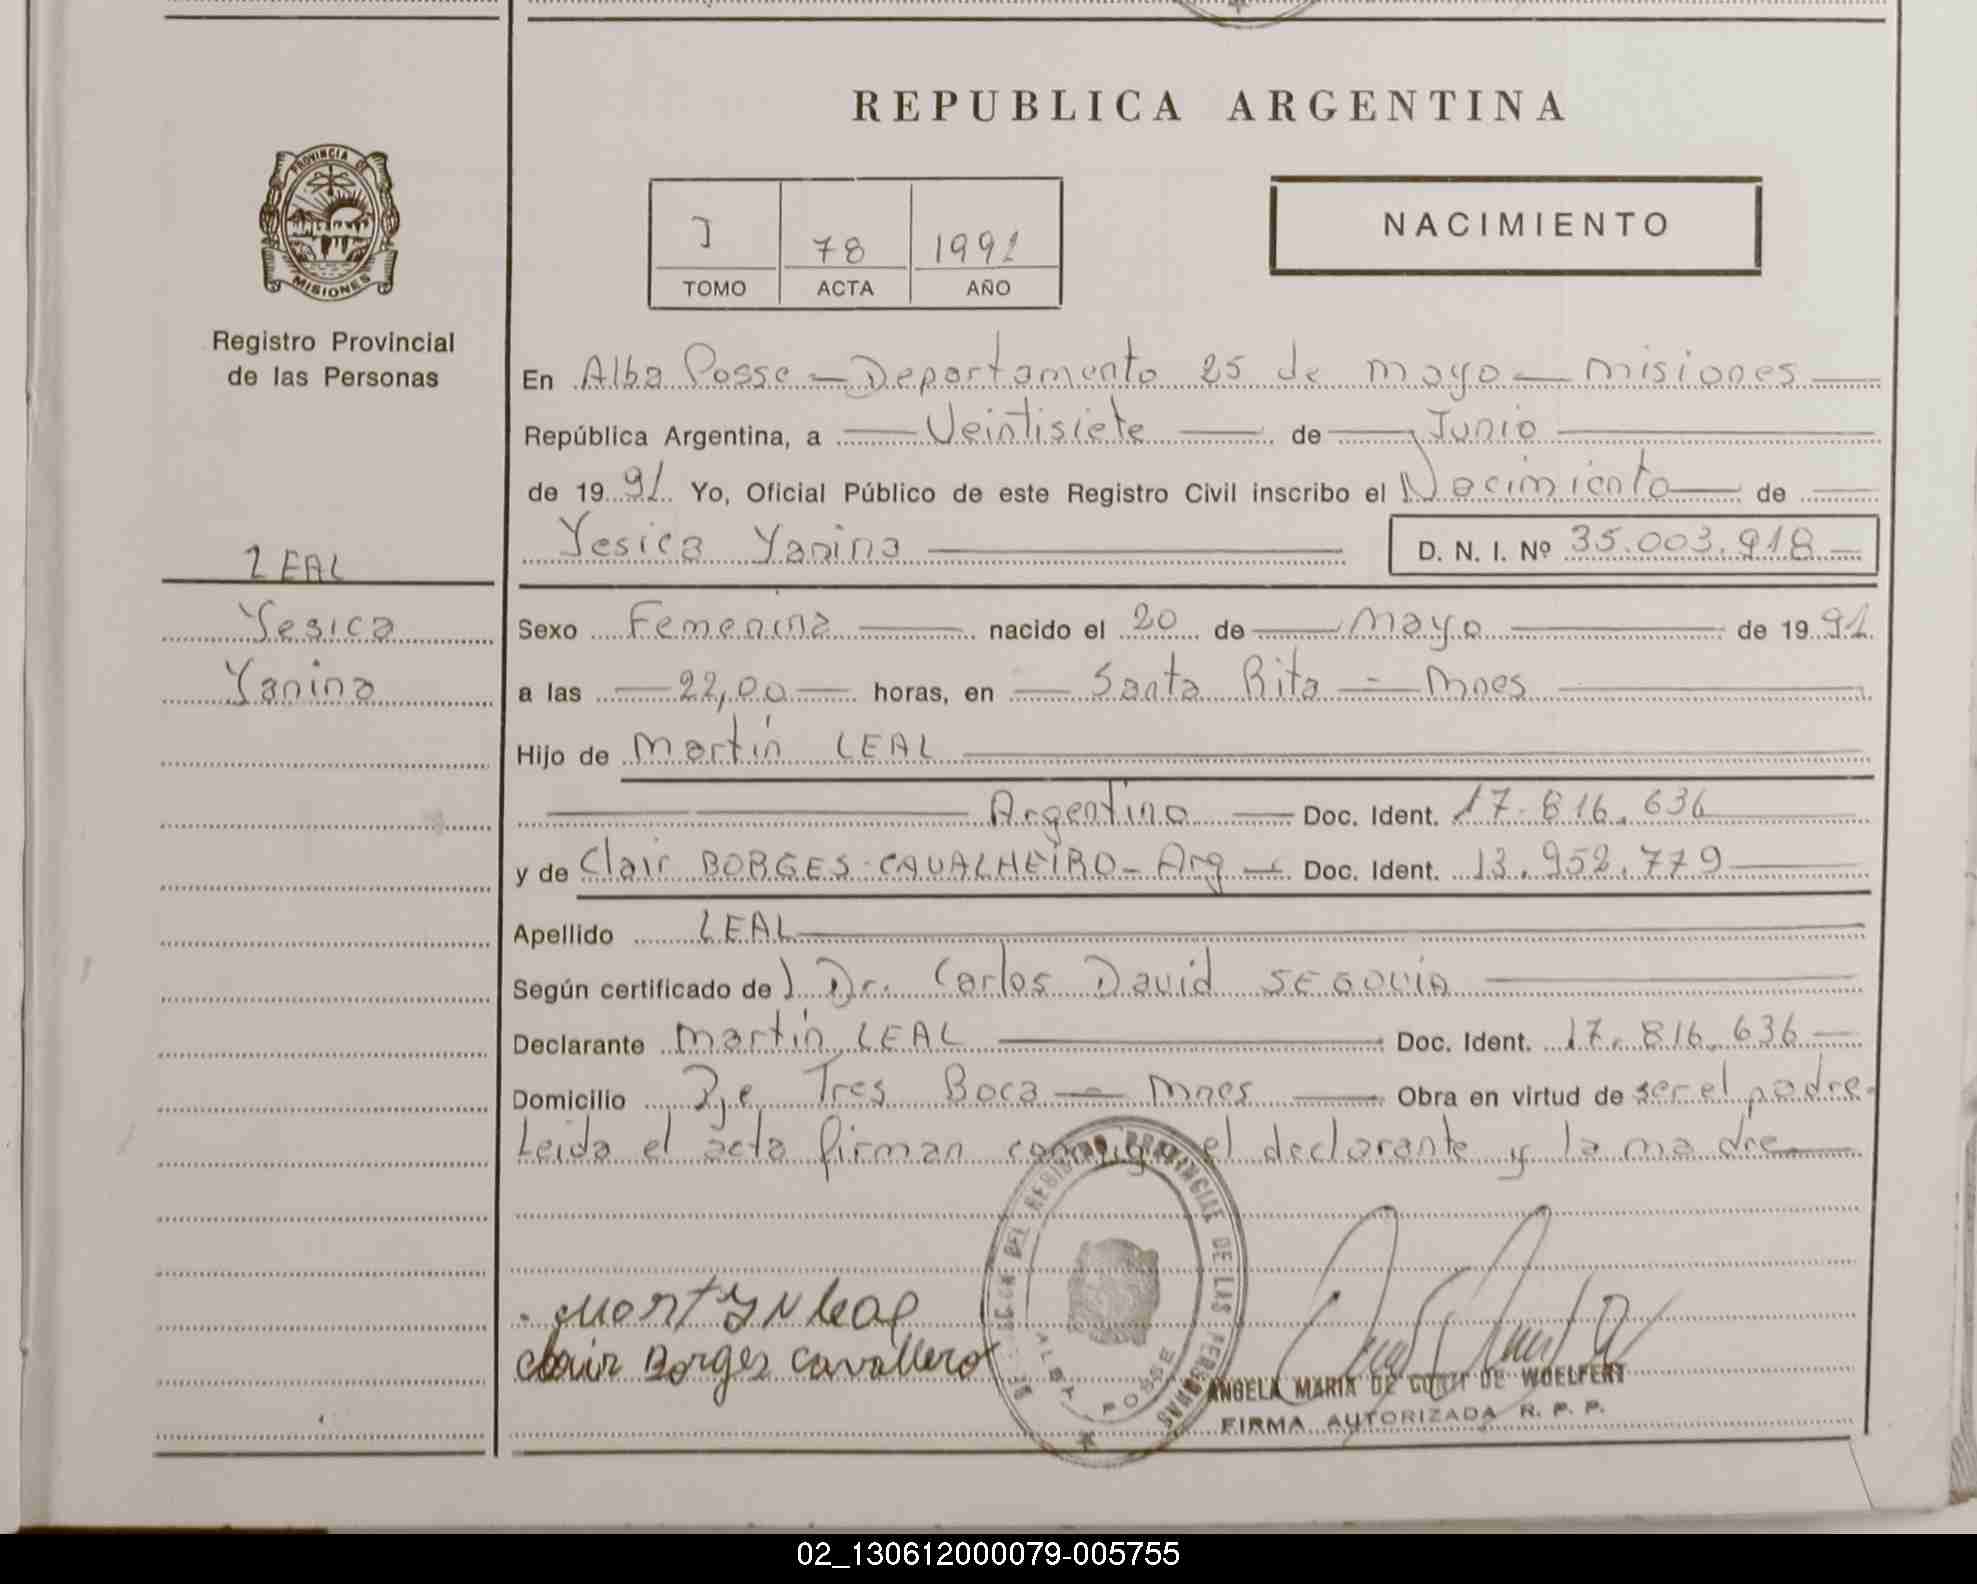 REPUBLICA ARGENTINA
PROVINCIA DE
MISIONES
Registro Provincial
de las Personas
I 78 1991
TOMO ACTA AÑO
NACIMIENTO
LEAL
Yesica
Yanina
En Alba Posse - Departamento 25 de mayo - misiones
República Argentina, a Veintisiete de Junio
de 1991 Yo, Oficial Público de este Registro Civil inscribo el Nacimiento de
Yesica Yanina D. N. I. Nº 35.003.918
Sexo Femenina nacido el 20 de mayo de 1991
a las 22,00 horas, en Santa Rita - Mnes
Hijo de Martín LEAL
Argentino Doc. Ident. 17.816.636
y de Clair BORGES CAVALHEIRO - Arg - Doc. Ident. 13.952.779
Apellido LEAL
Según certificado de Dr. Carlos David SEGOVIA
Declarante Martín LEAL Doc. Ident. 17.816.636
Domicilio Pje Tres Boca - Mnes Obra en virtud de ser el padre.
Leida el acta firman conmigo el declarante y la madre
Martyn leal
Clair Borges Cavallero
DEL REGISTRO PROVINCIAL DE LAS PERSONAS
ALBA POSSE
ANGELA MARIA DE GORTI DE WOELFERT
FIRMA AUTORIZADA R. P. P.
02_130612000079-005755